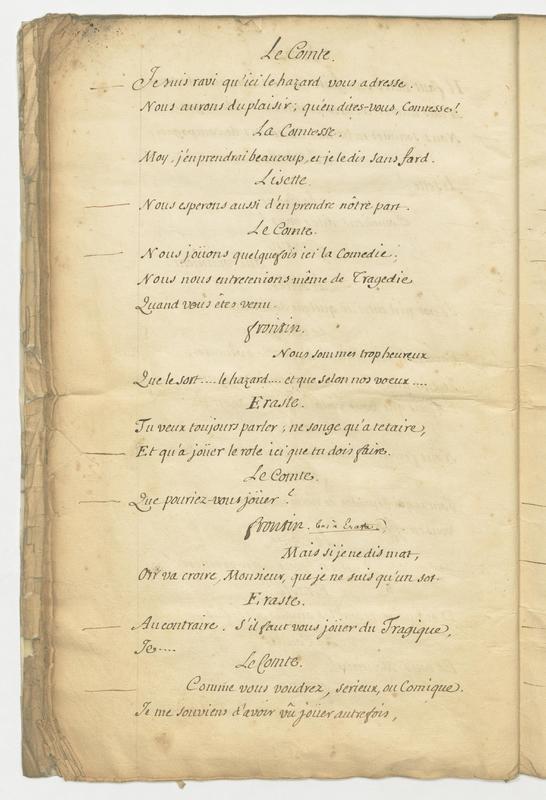 Le Comte.
Je suis ravi qu'ici le hazard vous adresse.
Nous aurons du plaisir; qu'en dites-vous, Comtesse!
La Comtesse.
Moy, j'en prendrai beaucoup, et je le dis sans fard.
Lisette.
Nous esperons aussi d'en prendre nôtre part.
Le Comte.
Nous joüons quelquefois ici la Comedie;
Nous nous entretenions même de Tragedie
Quand vous êtes venu.
Frontin.
Nous sommes trop heureux
Que le sort.... le hazard.... et que selon nos voeux....
Eraste.
Tu veux toujours parler; ne songe qu'a te taire,
Et qu'a joüer le role ici que tu dois faire.
Le Comte.
Que pouriez-vous joüer?
Frontin. bas à Eraste.
Mais si je ne dis mot,
On va croire, Monsieur, que je ne suis qu'un sot.
Eraste.
Au contraire. S'il faut vous joüer du Tragique,
Je....
Le Comte.
Comme vous voudrez, serieux, ou Comique.
Je me souviens d'avoir vû joüer autrefois,